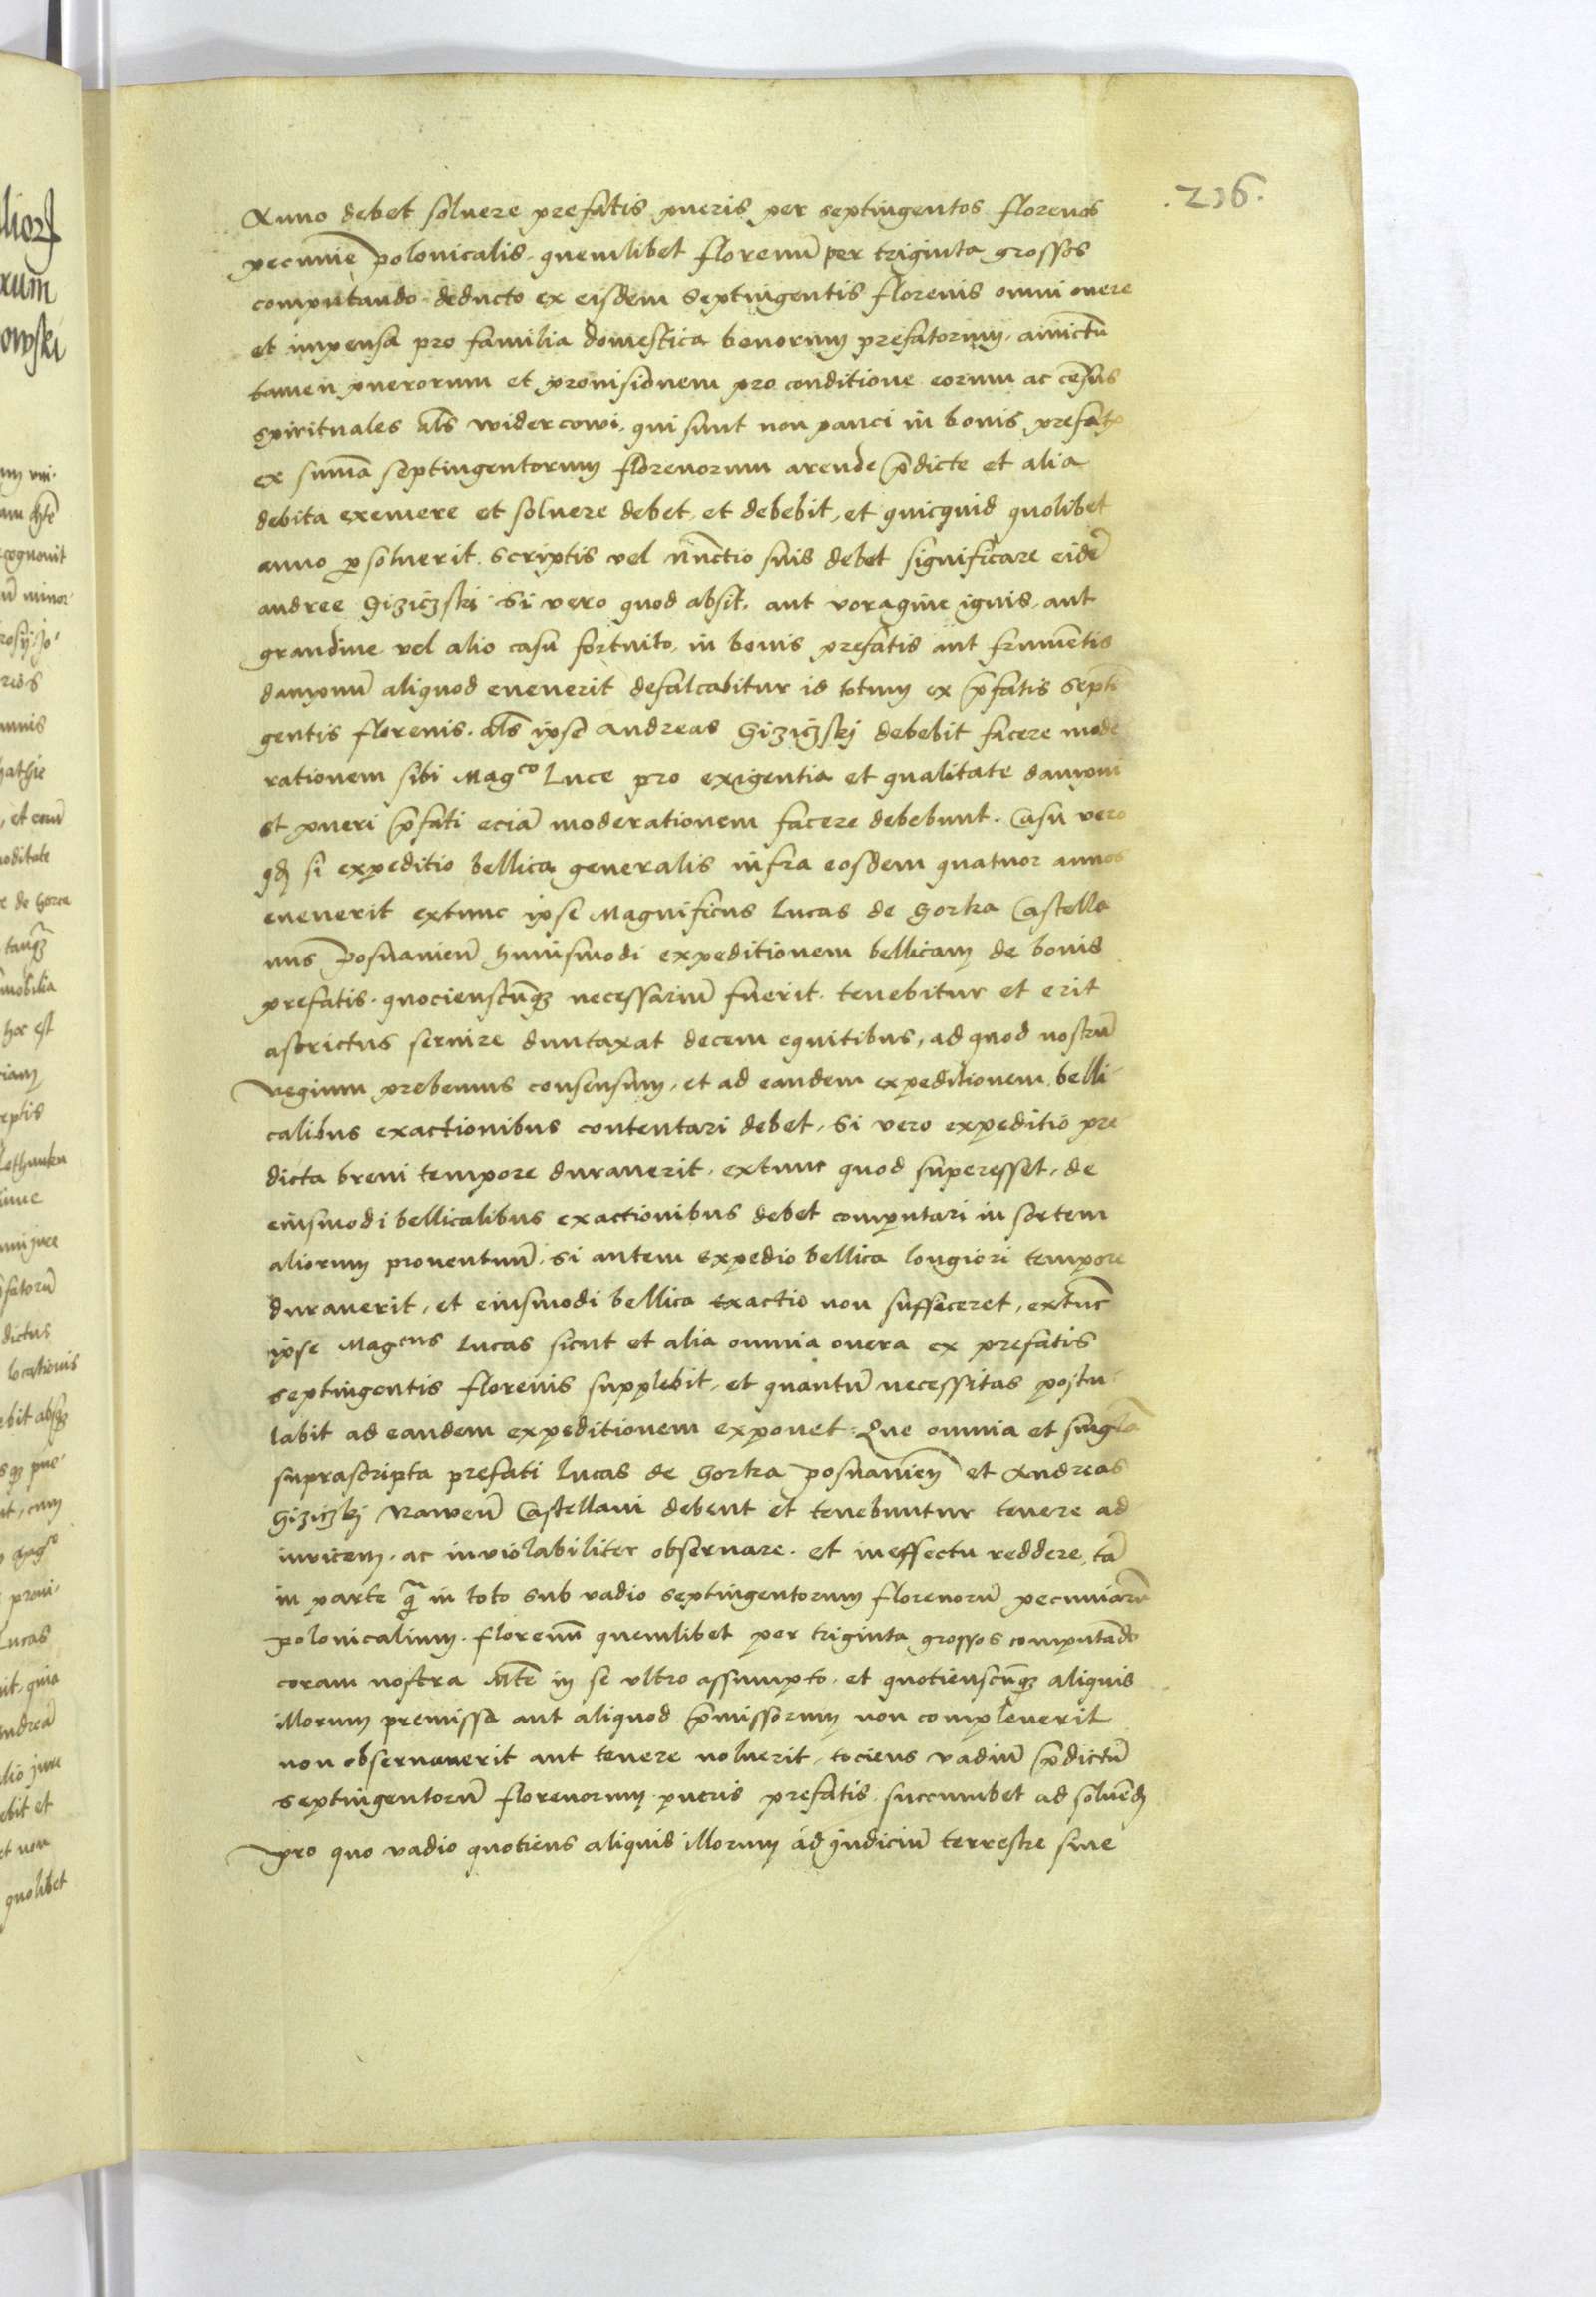 .236.
Anno debet soluere prefatis pueris per septingentos florenos
pecunie polonicalis. quemlibet florenũ per triginta grossos
computando. deducto ex eisdem septingentis florenis omni onere
et impensa pro familia domestica bonorum prefatorum. amictũ
tamen puerorum et prouisionem pro conditione eorum ac cẽsus
spirituales als widercowi. qui sunt non pauci in bonis prefat
ex sum̃a septingentorum florenorum arende p̃dicte et alia
debita exemere et soluere debet, et debebit, et quicquid quolibet
anno p̱soluerit. scriptis vel nũctio suis debet significare eidẽ
andree Giziczski Si vero quod absit, aut voragine ignis, aut
grandine vel alio casu fortuito, in bonis prefatis aut frumẽtis
dampnũ aliquod euenerit defalcabitur id totum ex p̃fatis septĩ
gentis florenis. als ipse andreas Giziczskj debebit facere mode
rationem sibi Magco Luce pro exigentia et qualitate dampni
et pueri p̃fati eciã moderationem facere debebunt. Casu vero
qđ si expeditio bellica generalis infra eosdem quatuor annos
euenerit extunc ipse Magnificus Lucas de Gorka Castella
nus Posnanieñ huiusmodi expeditionem bellicam de bonis
prefatis. quocienscũqȝ necessariũ fuerit. tenebitur et erit
astrictus seruire duntaxat decem equitibus, ad quod nostrũ
regium prebemus consensum, et ad eandem expeditionem belli
calibus exactionibus contentari debet, Si vero expeditio pre
dicta breui tempore durauerit, extunc quod superesset, de
eiusmodi bellicalibus exactionibus debet computari in sortem
aliorum prouentuũ. Si autem expedio bellica longiori tempore
durauerit, et eiusmodi bellica exactio non sufficeret, extũc
ipse Magcus Lucas sicut et alia omnia onera ex prefatis
septingentis florenis supplebit, et quantũ necessitas postu
labit ad eandem expeditionem exponet. Que omnia et singla
suprascripta prefati Lucas de Gorka posnanieñ et Andreas
Giziczkj Raweñ Castellani debent et tenebuntur tenere ad
inuicem. ac inviolabiliter obseruare. et in effectu reddere, tã
in parte q̃ in toto sub vadio septingentorum florenorũ pecuniarũ
polonicalium. florenũ quemlibet per triginta grossos computãdo
coram nostra Mte in se vltro assumpto. et quotienscũqȝ aliquis
illorum premissa aut aliquod p̃missorum non compleuerit
non obseruauerit aut tenere noluerit, tociens vadiũ p̃dictũ
septingentorũ florenorum pueris prefatis succumbet ad soluẽđ
pro quo vadio quotiens aliquis illorum ad judiciũ terrestre siue